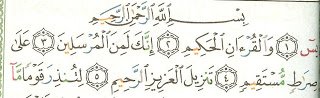 بِسْمِ ٱللَّهِ ٱلرَّحْمَٰنِ ٱلرَّحِيمِ
يسٓ ﴿١﴾ وَٱلْقُرْءَانِ ٱلْحَكِيمِ ﴿٢﴾ إِنَّكَ لَمِنَ ٱلْمُرْسَلِينَ ﴿٣﴾ عَلَىٰ
صِرَٰطٍ مُّسْتَقِيمٍ ﴿٤﴾ تَنزِيلَ ٱلْعَزِيزِ ٱلرَّحِيمِ ﴿٥﴾ لِتُنذِرَ قَوْمًا مَّآ